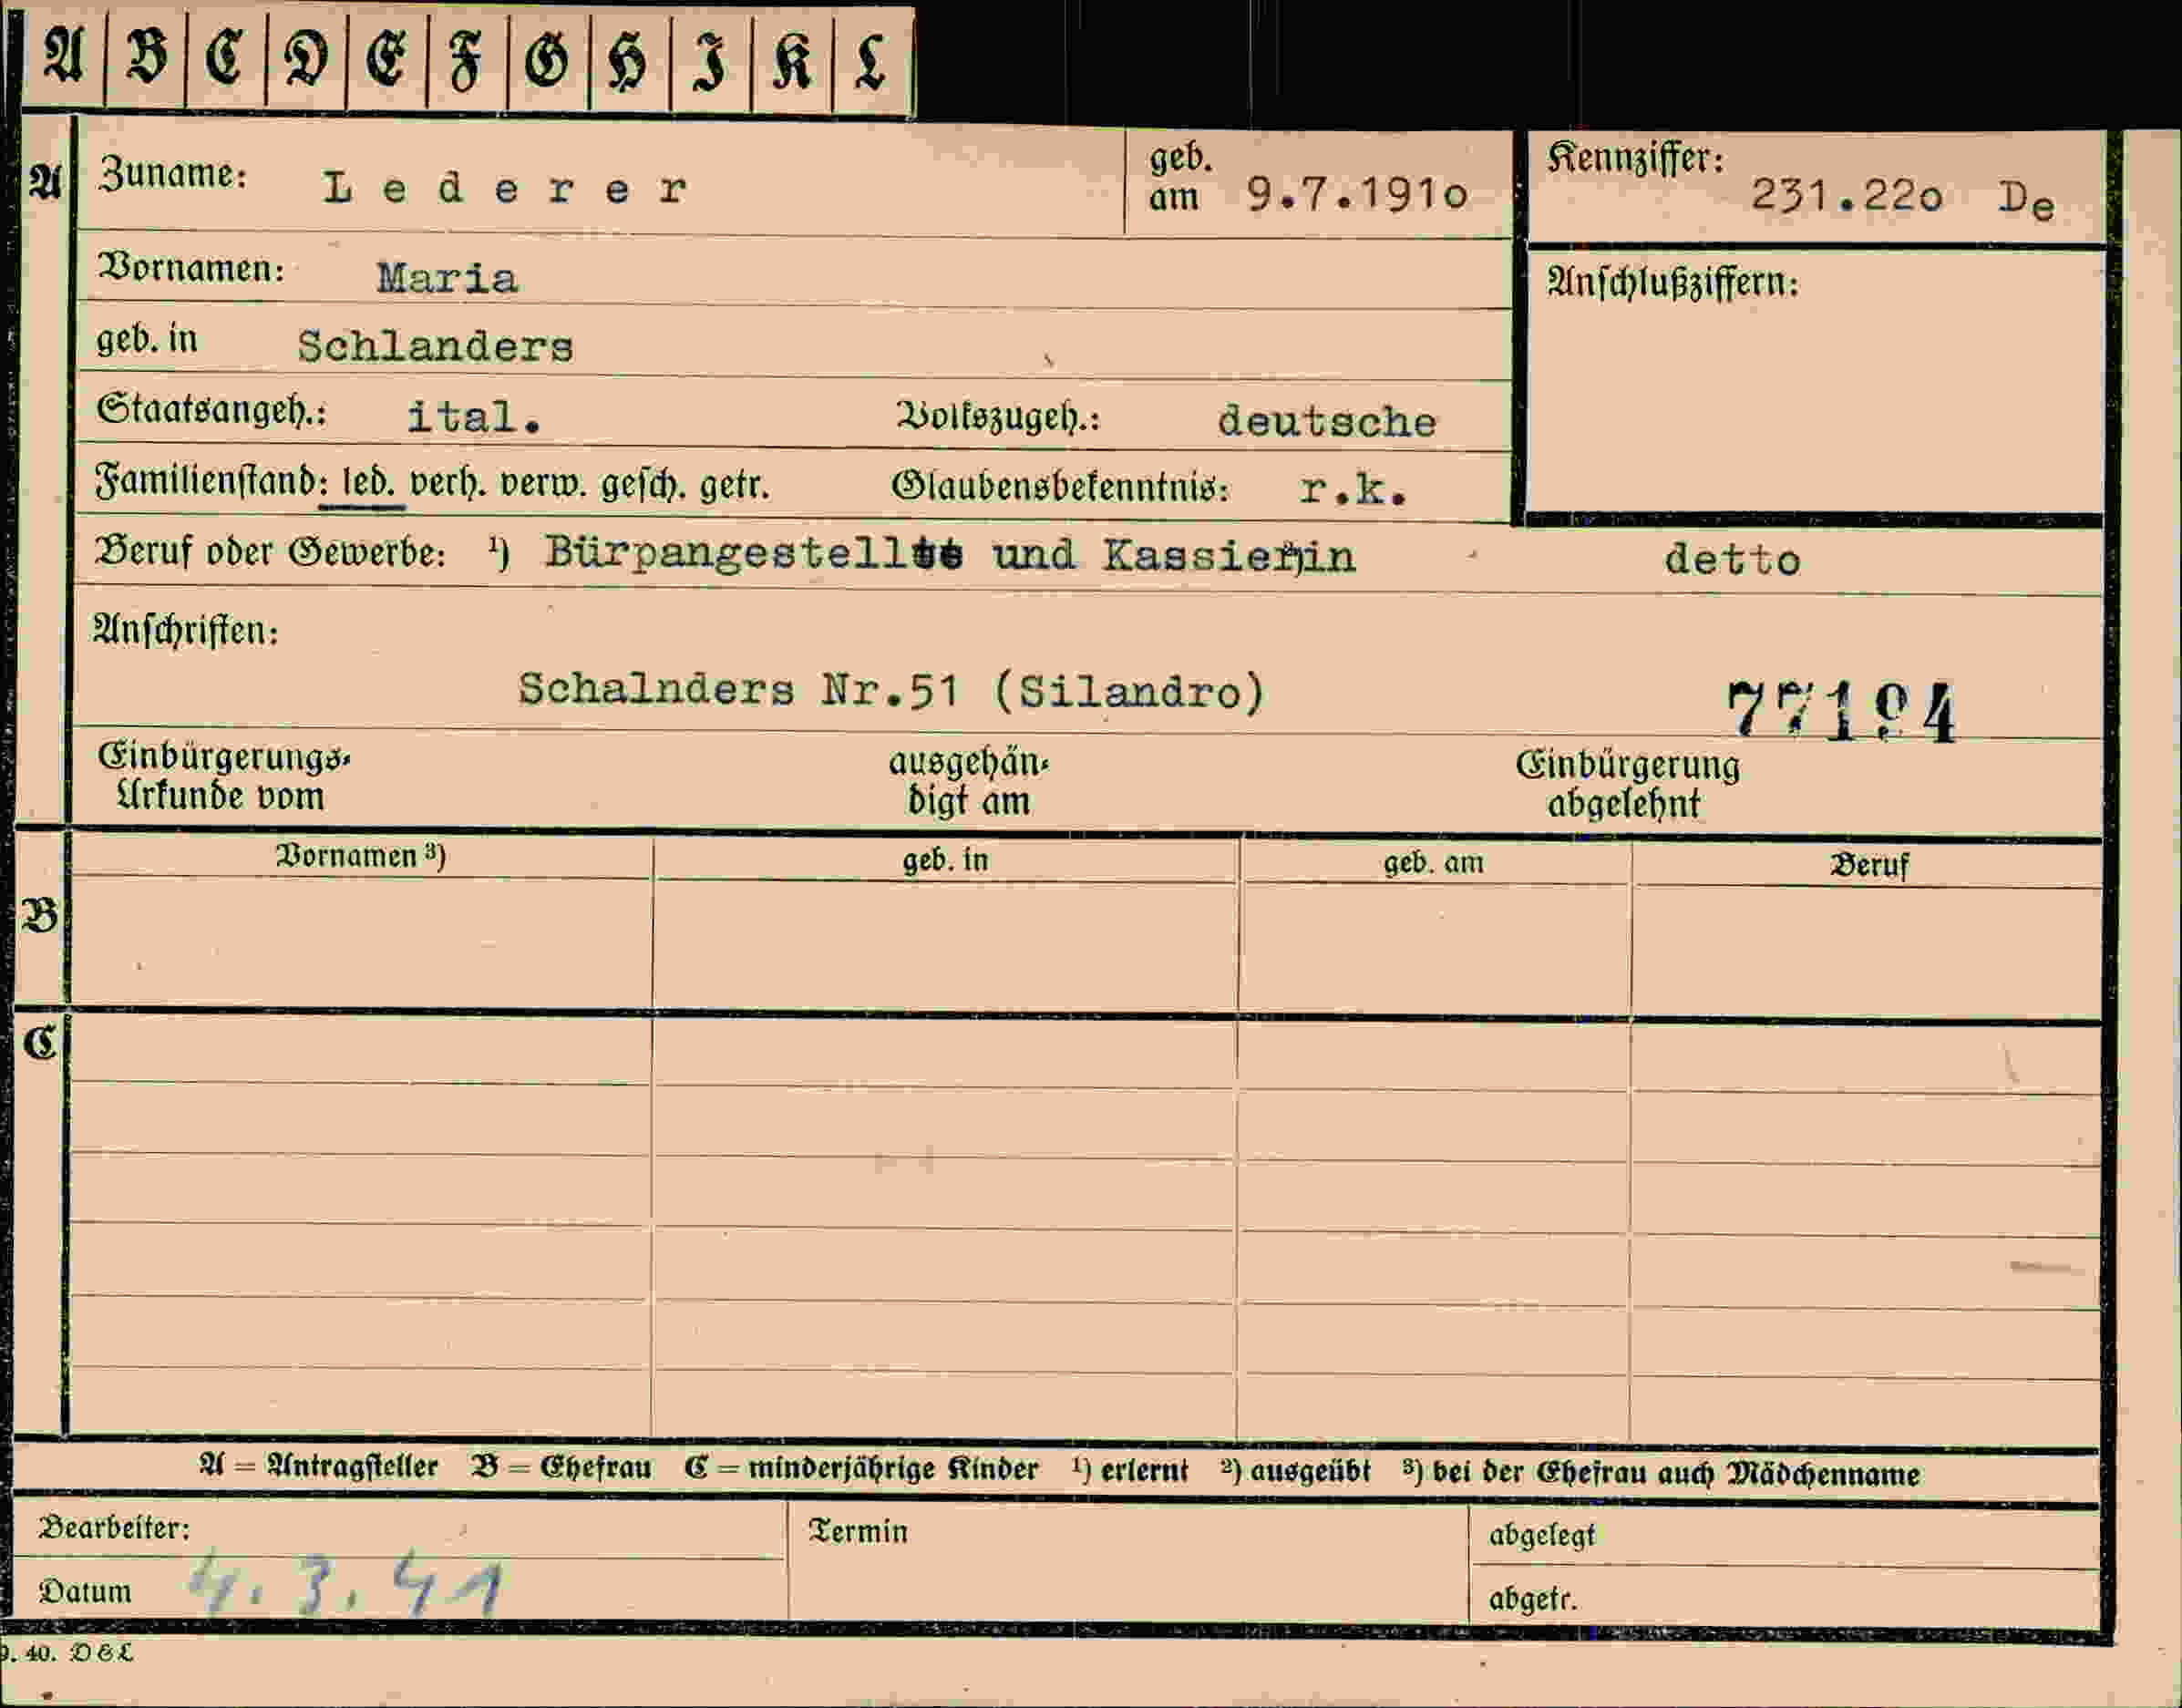 A B C D E F G H I K L
A Zuname: Lederer geb. am 9.7.191o Kennziffer: 231.22o De
Vornamen: Maria Anschlußziffern:
geb. in Schlanders
Staatsangeh.: ital. Volkszugeh.: deutsche
Familienstand: led. verh. verw. gesch. getr. Glaubensbekenntnis: r.k.
Beruf oder Gewerbe: ¹) Bürpangestellte und Kassierin detto
Anschriften:
Schalnders Nr.51 (Silandro) 77194
Einbürgerungs- ausgehän- Einbürgerung
Urkunde vom digt am abgelehnt
Vornamen ³) geb. in geb. am Beruf
B
C
A = Antragsteller B = Ehefrau C = minderjährige Kinder ¹) erlernt ²) ausgeübt ³) bei der Ehefrau auch Mädchenname
Bearbeiter: Termin abgelegt
Datum 4.3.41 abgetr.
9. 40. D & L